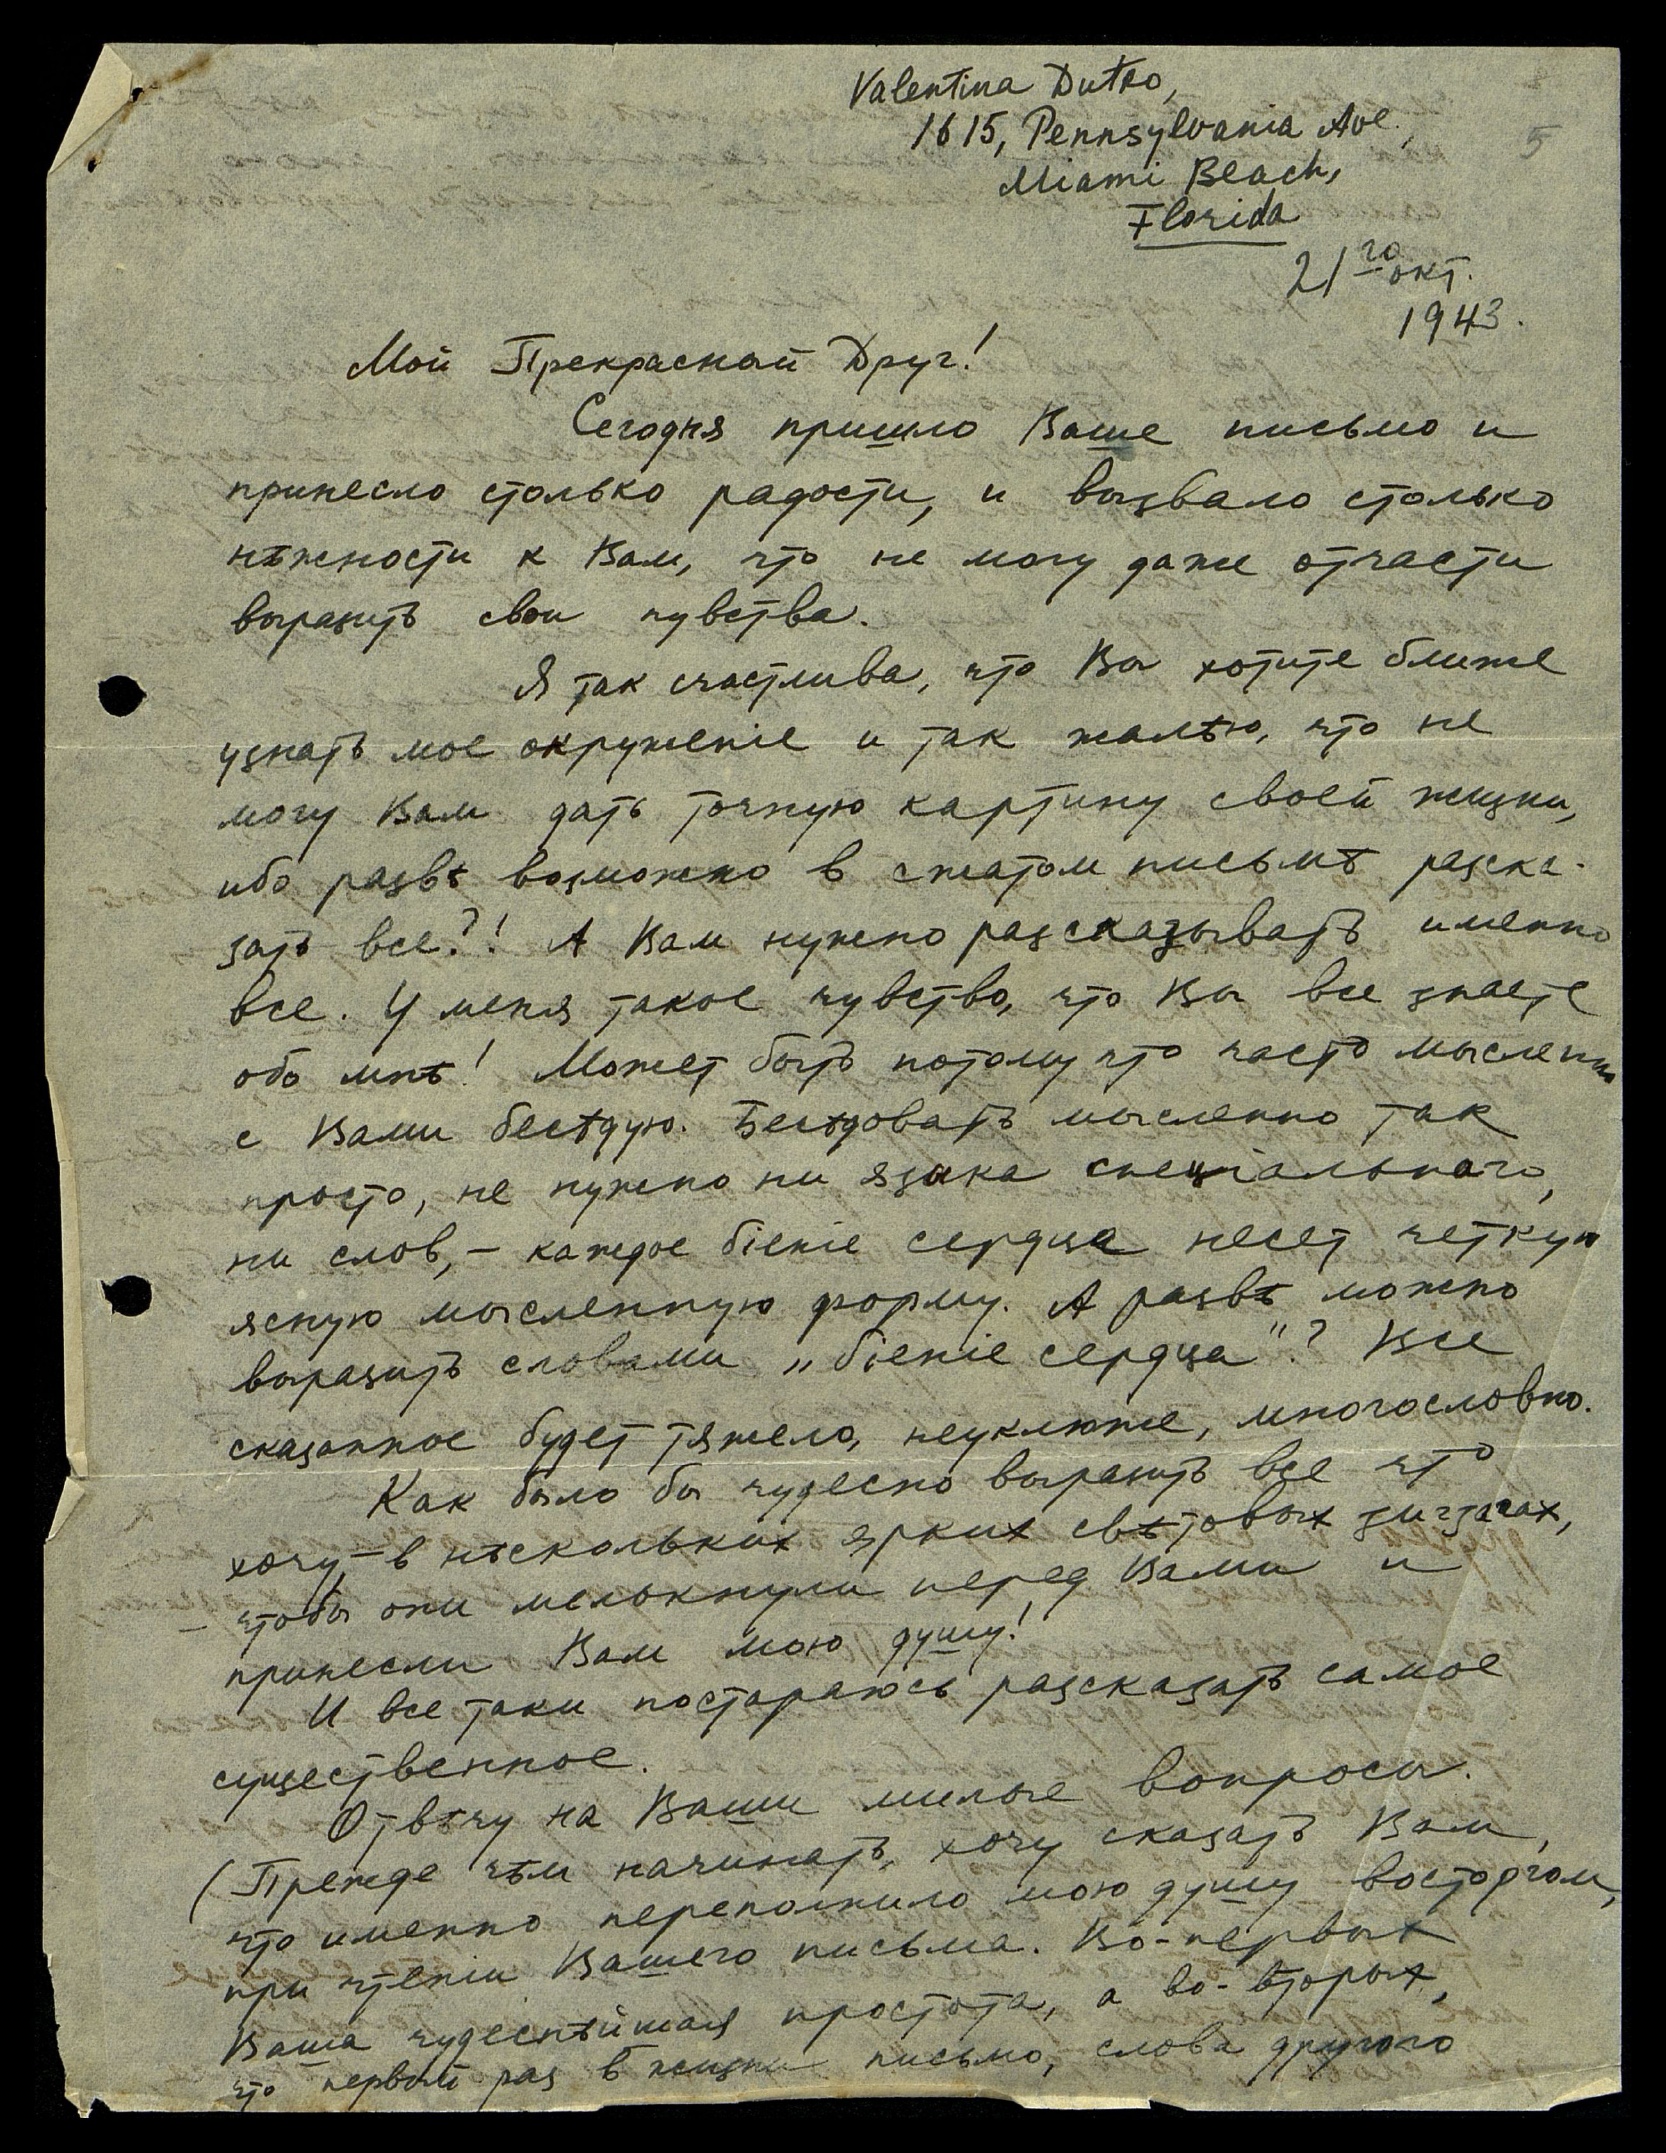 Valentina Dutko,
1615, Pennsylvania Ave.,
Miami Beach,
Florida
5
21го окт.
1943.
Мой Прекрасный Друг!
Сегодня пришло Ваше письмо и
принесло столько радости, и вызвало столько
нѣжности к Вам, что не могу даже отчасти
выразить свои чувства.
Я так счастлива, что Вы хотите ближе
узнать мое окруженіе и так жалѣю, что не
могу Вам дать точную картину своей жизни,
ибо развѣ возможно в сжатом письмѣ разска-
зать все?! А Вам нужно разсказывать именно
все. У меня такое чувство, что Вы все знаете
обо мнѣ! Может быть потому что часто мысленно
с Вами бесѣдую. Бесѣдовать мысленно так
просто, не нужно ни языка спеціальнаго,
ни слов, – каждое біеніе сердца несет четкую
ясную мысленную форму. А развѣ можно
выразить словами „біеніе сердца"? Все
сказанное будет тяжело, неуклюже, многословно.
Как было бы чудесно выразить все что
хочу – в нѣскольких ярких свѣтовых зигзагах,
– чтобы они мелькнули перед Вами и
принесли Вам мою душу!
И все таки постараюсь разсказать самое
существенное.
Отвѣчу на Ваши милые вопросы.
(Прежде чѣм начинать, хочу сказать Вам,
что именно переполнило мою душу восторгом,
при чтеніи Вашего письма. Во-первых
Ваша чудеснѣйшая простота, а во-вторых,
что первый раз в жизни письмо, слова другого